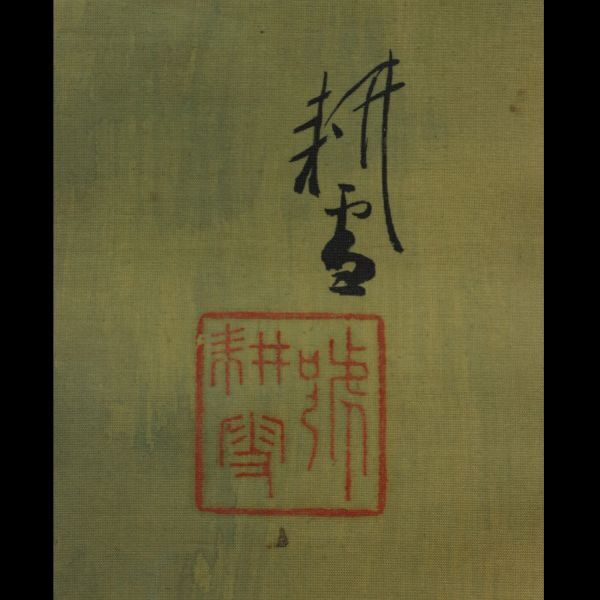 耕雪
號耕雪